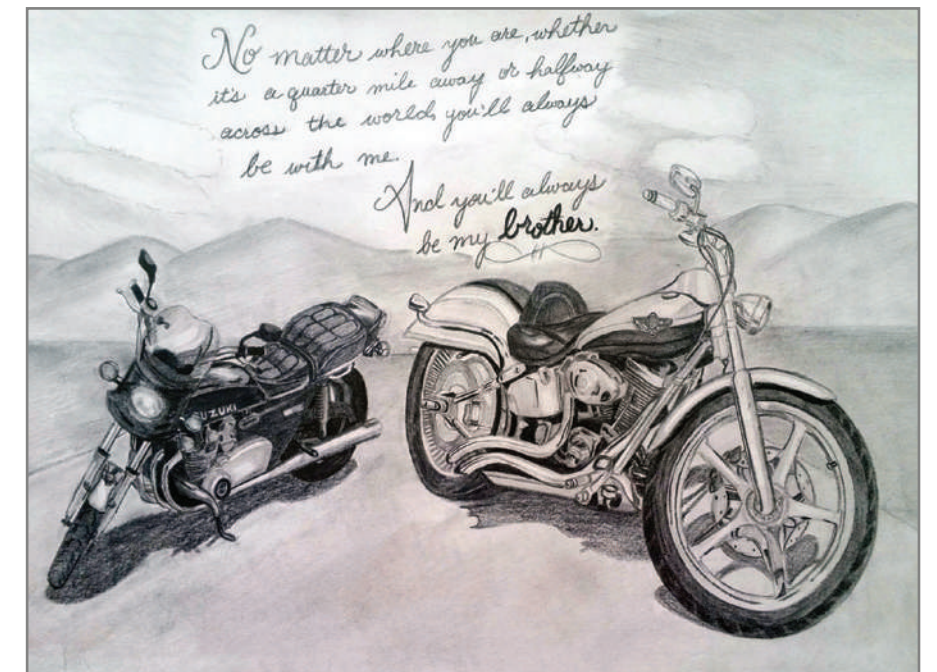 No matter where you are, whether
it's a quarter mile away or halfway
across the world, you'll always
be with me.
And you'll always
be my brother.
SUZUKI